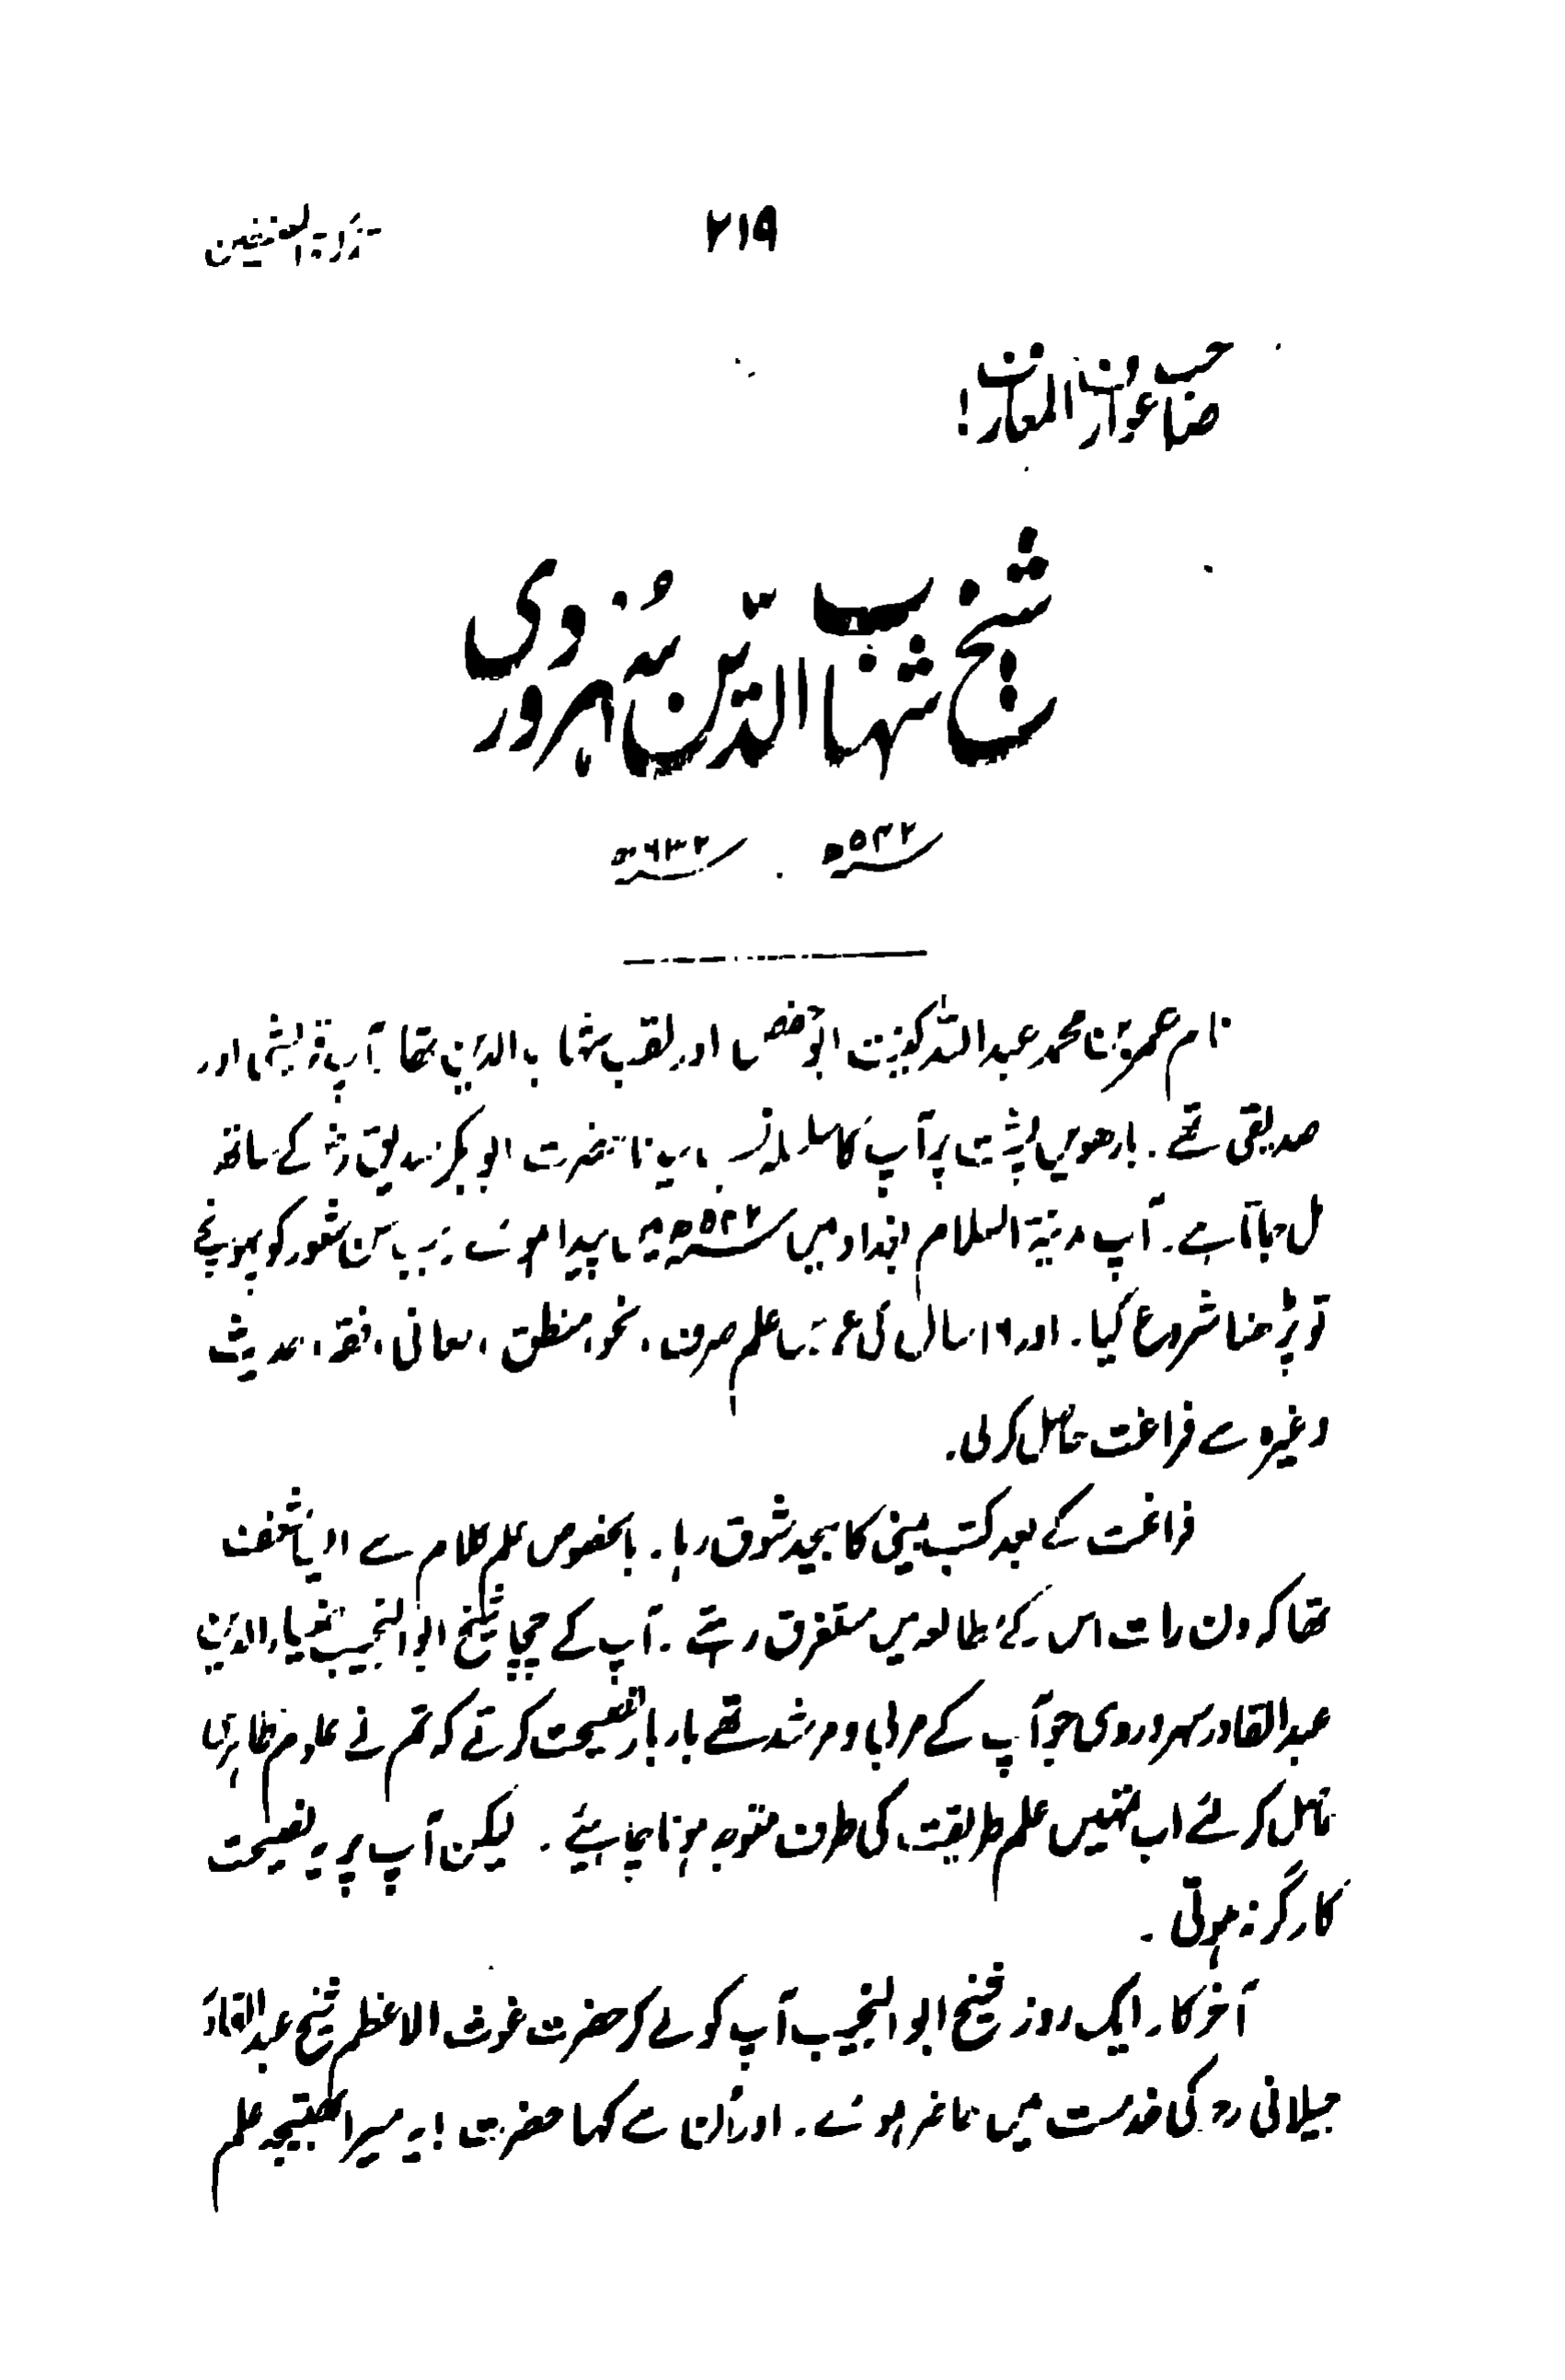 تذکرۃ المصنفین
۲۱۹
صاحب عوارف المعارف!
شیخ شہاب الدین سہروردی
۵۴۲ھ ۶۳۲ھ
نام عمر بن محمد عبداللہ کنیت ابو حفص اور لقب شہاب الدین تھا آپ قریشی اور
صدیقی تھے۔ بارھویں پشت پر آپ کا سلسلہ نسب سیدنا حضرت ابوبکر صدیق رضؓ کے ساتھ
مل جاتا ہے۔ آپ مدینۃ السلام بغداد میں ۵۴۲ھ میں پیدا ہوئے جب سن شعور کو پہونچے
تو پڑھنا شروع کیا۔ اور ۱۶ سال کی عمر میں علم صرف، نحو، منطق، معانی، فقہ، حدیث
وغیرہ سے فراغت حاصل کرلی۔
فراغت کے بعد کتب بینی کا بیحد شوق رہا۔ بالخصوص علم کلام سے ایسا شغف
تھا کہ دن رات اس کے مطالعہ میں مستغرق رہتے۔ آپ کے چچا شیخ ابوالنجیب ضیاء الدین
عبدالقادر سہروردی جو آپ کے مربی و مرشد تھے بار بار نصیحت کرتے کہ تم نے علوم ظاہری
حاصل کر لئے اب تمہیں علم طریقت کی طرف متوجہ ہونا چاہیئے۔ لیکن آپ پر یہ نصیحت
کارگر نہ ہوتی۔
آخر کار ایک روز شیخ ابوالنجیب آپ کو لے کر حضرت غوث الاعظم شیخ عبدالقادر
جیلانی رح کی خدمت میں حاضر ہوئے۔ اور اُن سے کہا حضرت! یہ میرا بھتیجہ علم